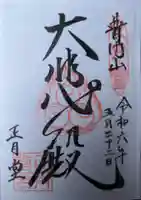 普門山
令和六年
五月二十二日
大悲殿
奉拝
正月堂